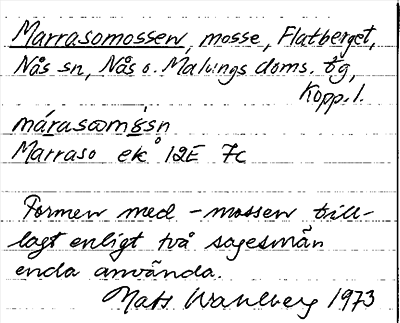 Marrasomossen, mosse, Flatberget,
Nås sn, Nås o. Malungs doms. tg,
Kopp. l.
márasωmåsn
Marraso ek 12E 7c
Formen med -mossen till-
lagt enligt två sagesmän
enda använda.
Mats Wahlberg 1973